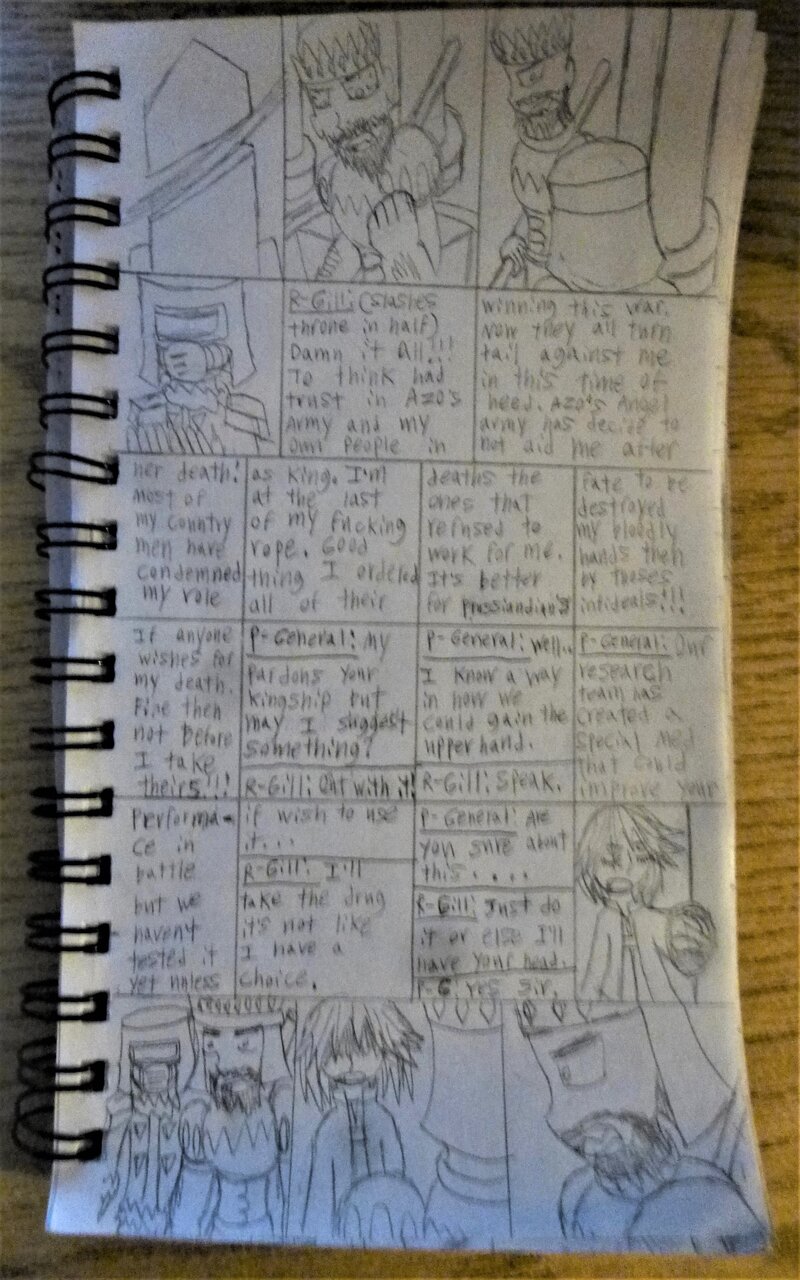 R-Gill: (slashes
throne in half)
Damn it all!!!
To think had
trust in Azo's
Army and my
own people in
winning this war.
Now they all turn
tail against me
in this time of
need. Azo's Angel
army has decide to
not aid me after
her death!
most of
my country
men have
condemned
my role
as king. I'm
at the last
of my fucking
rope. Good
thing I ordered
all of their
deaths the
ones that
refused to
work for me.
It's better
for prussiandian's
fate to be
destroyed
my bloodly
hands then
by thoses
infideals!!!
If anyone
wishes for
my death.
Fine then
not before
I take
theirs!!!
P-General: My
Pardons your
kingship but
may I suggest
something?
R-Gill: Out with it!
P-General: Well..
I know a way
in how we
could gain the
upper hand.
R-Gill: Speak.
P-General: Our
research
team has
created a
special med
that could
improve your
Performan-
ce in
battle
but we
haven't
tested it
yet unless
if wish to use
it...
R-Gill: I'll
take the drug
it's not like
I have a
choice.
P-General: Are
you sure about
this....
R-Gill: Just do
it or else I'll
have your head.
P-G: Yes sir.